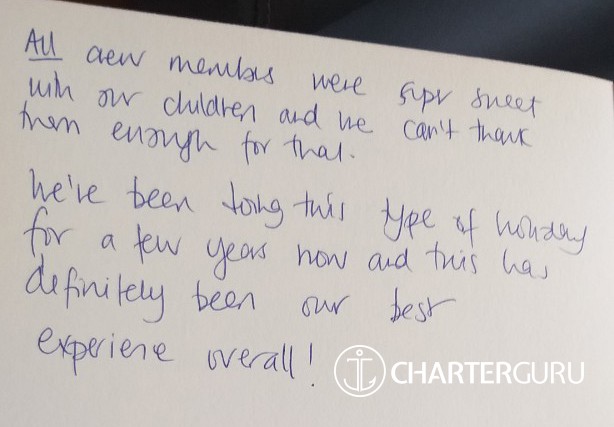 All crew members were super sweet
with our children and we can't thank
them enough for that.
We've been doing this type of holiday
for a few years now and this has
definitely been our best
experience overall!
CHARTERGURU